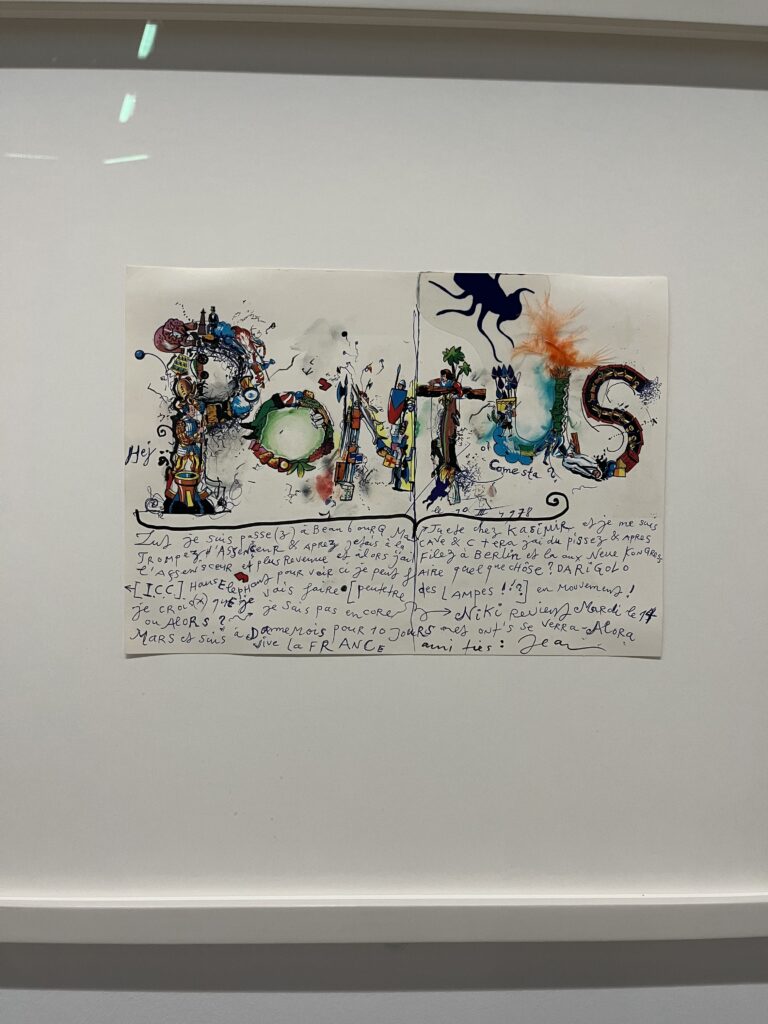 Hej
PONTUS
Come sta?
le 10 III 1978
Zut je suis passe(z) à BeaubourG Mardi chez Kasimir et je me suis
TROMPEZ d'Assenceur & APREZ jetais à la CAVE & C tera j'ai du pissez & APRES
L'ASSENSCEUR et plus Revenue et alors jai FILEZ à BERLIN et la aux NEUE KONGRES
←[ICC] HansElephant pour voir ci je peut FAIRE quelque chôse? DARIGOLO
je croi(x) que je vais faire [peutetre des [LAMPES !!?] en mouvement!
ou ALORS? je sais pas encore → NiKi Revient Mardi le 14
MARS et suis à DANNEMOIS pour 10 JOURS et ont's se verra - ALORA
vive la FRANCE ami ties: Jean